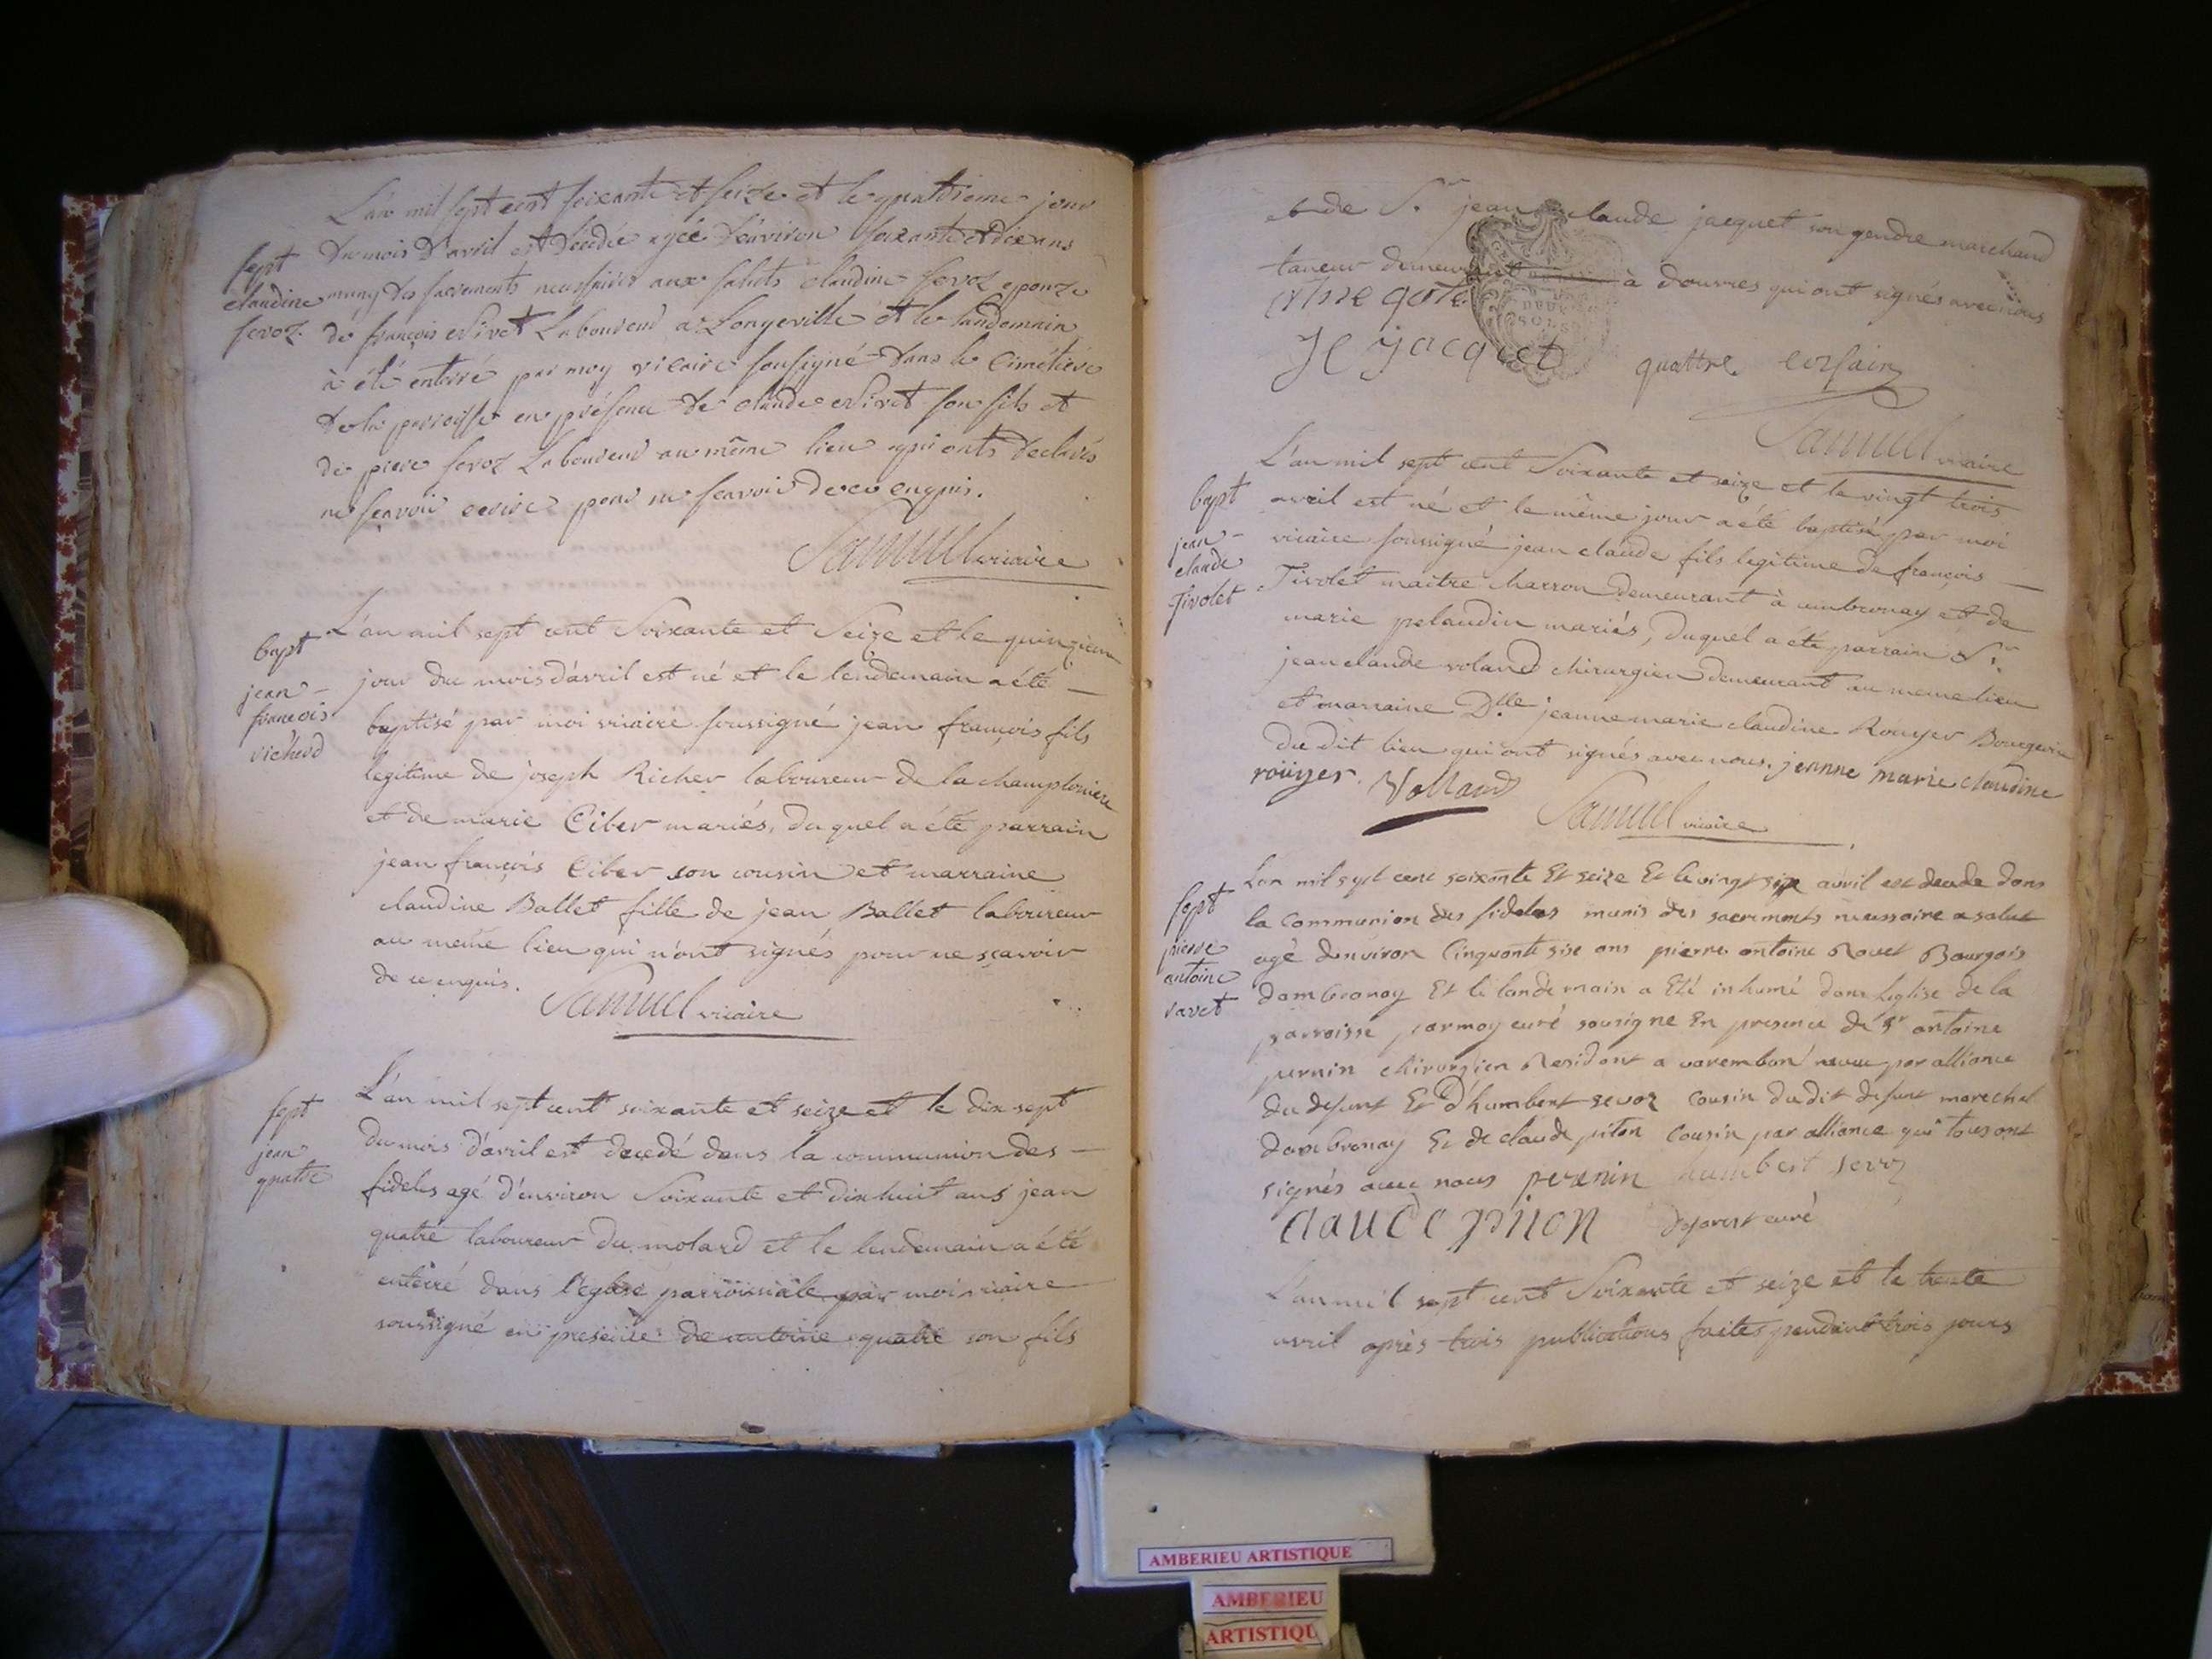 L'an mil sept cent soixante et seize et le quattrieme jour
du mois d'avril est decedée agée d'environ soixante et dix ans
sept
claudine
servoz
muny des sacrements necessaires aux saluts claudine servoz epouze
de françois Livet Laboureur a Longeville et le landemain
à été enterré par moy vicaire sousigné dans le Cimétiere
de la parroisse en présence de claude Livet son fils et
de piere servoz Laboureur au même lieu qui onts declarés
ne sçavoir ecrire pour ne scavoir de ce enquis.
Samuel vicaire
bapt
jean -
francois
richerd
L'an mil sept cent Soixante et Seize et le quinzieme
jour du mois d'avril est né et le lendemain a été -
baptisé par moi vicaire soussigné jean françois fils
legitime de joseph Richer laboureur de la champloniere
et de marie Ciber mariés, duquel a été parrain
jean françois Ciber son cousin et marraine
claudine Ballet fille de jean Ballet laboureur
au meme lieu qui n'ont signés pour ne sçavoir
de ce enquis. Samuel vicaire
sept
jean
quatre
L'an mil sept cent soixante et seize et le dix sept
du mois d'avril est decedé dans la communion des -
fideles agé d'environ Soixante et dixhuit ans jean
quatre laboureur du molard et le lendemain a été
enterré dans l'eglise parroissiale par moi vicaire
soussigné en presence de antoine quatre son fils
et de Sr. jean claude jacquet son gendre marchand
taneur demeurant à douvres qui ont signés avec nous
JC jacquet quattre
Samuel vicaire
bapt
jean -
claude
Tivolet
L'an mil sept cent Soixante et seize et le vingt trois
avril est né et le même jour a été baptisé par moi
vicaire soussigné jean claude fils legitime de françois -
Tivolet maitre charron demeurant à ambronay et de
marie pelaudin mariés, duquel a été parrain Sr.
jean claude voland chirurgien demeurant au meme lieu
et marraine Dlle jeanne marie claudine Rouyer Bourgeoise
du dit lieu qui ont signés avec nous. jeanne marie claudine
roüyer. Volland Samuel vicaire
sept
pierre
antoine
ravet
Lan mil sept cent soixante Et seize Et le vingt six avril est decede dans
la Communion des fideles munis des sacrements necessaire a salut
agé denviron Cinquante six ans pierre antoine Ravet Bourgois
dambronay Et le landemain a Eté inhumé dans leglise de la
parroisse par moy curé sousigne En presence de Sr antoine
pernin chirurgien Residant a varembon neveu par alliance
du defunt Et d'humbert servoz cousin dudit defunt marechal
dambronay Et de claude piton Cousin par alliance qui tous ont
signés avec nous pernin humbert servoz
claude piton curé
L'an mil sept cent Soixante et seize et le trente
avril après trois publications faites pendant trois jours
AMBERIEU ARTISTIQUE
AMBERIEU
ARTISTIQU